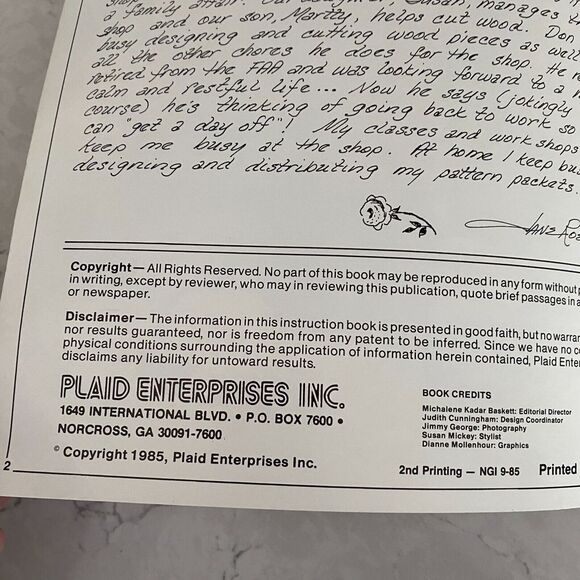 shop a family affair. Our daughter, Susan, manages
shop and our son, Martey, helps cut wood. Don
busy designing and cutting wood pieces as well
all the other chores he does for the shop. He
retired from the FAA and was looking forward to a
calm and restful life... Now he says (jokingly
course) he's thinking of going back to work so
can "get a day off"! My classes and work shops
keep me busy at the shop. At home I keep
designing and distributing my pattern packets.
Copyright— All Rights Reserved. No part of this book may be reproduced in any form without
in writing, except by reviewer, who may in reviewing this publication, quote brief passages in a
or newspaper.
Disclaimer— The information in this instruction book is presented in good faith, but no
nor results guaranteed, nor is freedom from any patent to be inferred. Since we have no
physical conditions surrounding the application of information herein contained, Plaid
disclaims any liability for untoward results.
PLAID ENTERPRISES INC.
1649 INTERNATIONAL BLVD. • P.O. BOX 7600 •
NORCROSS, GA 30091-7600
© Copyright 1985, Plaid Enterprises Inc.
BOOK CREDITS
Michalene Kadar Baskett: Editorial Director
Judith Cunningham: Design Coordinator
Jimmy George: Photography
Susan Mickey: Stylist
Dianne Mollenhour: Graphics
2
2nd Printing — NGI 9-85 Printed